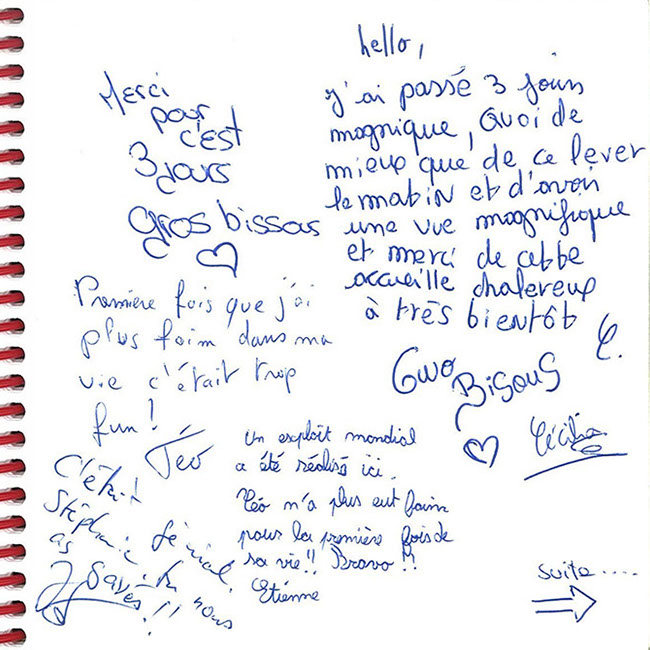 Merci
pour
c'est
3 jours
gros bissas
hello,
j'ai passé 3 jours
magnique, Quoi de
mieux que de ce lever
le matin et d'avoir
une vue magnifique
et merci de cette
accueille chalereux
à très bientôt
C.
Gwo
Bisous
Cécilia
Première fois que j'ai
plus faim dans ma
vie c'était trop
fun !
Téo
Un exploit mondial
a été réalisé ici.
Téo n'a plus eut faim
pour la première fois de
sa vie !! Bravo !!
Etienne
C'était
Stéphanie Génial,
as nous
Suite.....